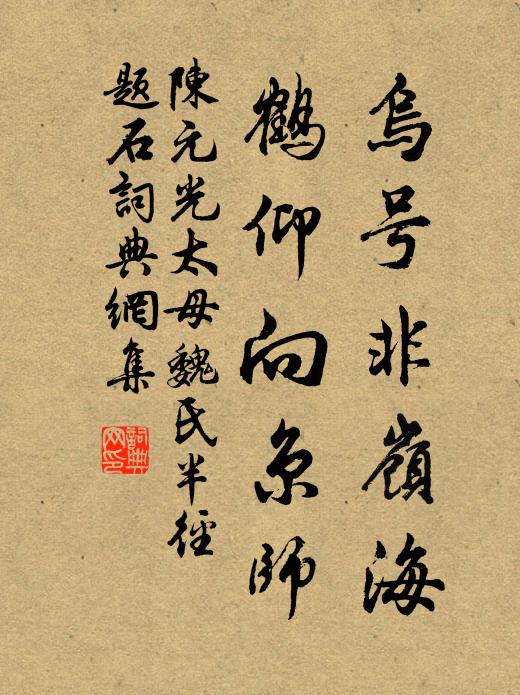 烏号非嶺海
鶴仰向京師
陳元光太母魏氏半徑
題石詞典網集
詞典網印